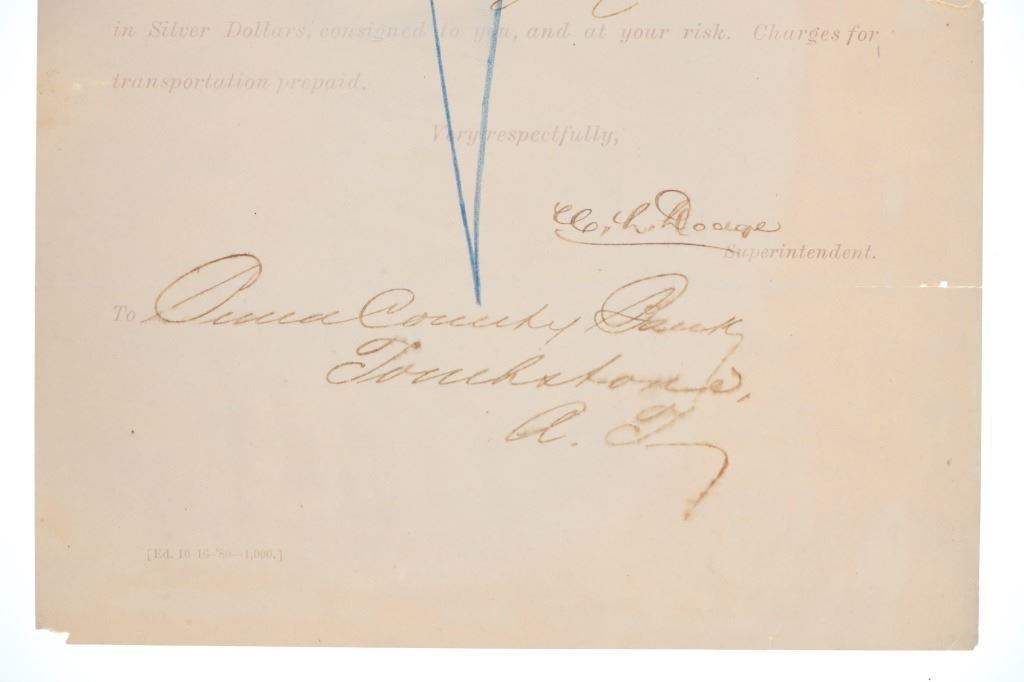 in Silver Dollars, consigned to you, and at your risk. Charges for
transportation prepaid.
Very respectfully,
C. L. Dodge
Superintendent.
To Pima County Bank
Tombstone,
A. T.
[Ed. 10-16-'80—1,000.]